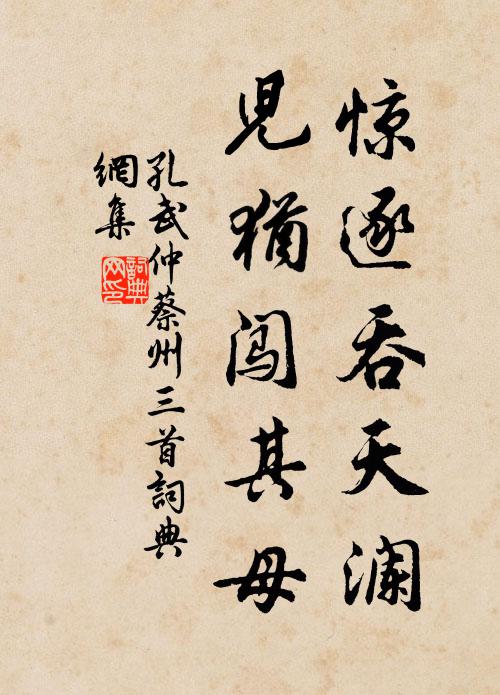 惊逐吞天澜
児犹闯其母
孔武仲蔡州三首詞典
網集
詞典
网印